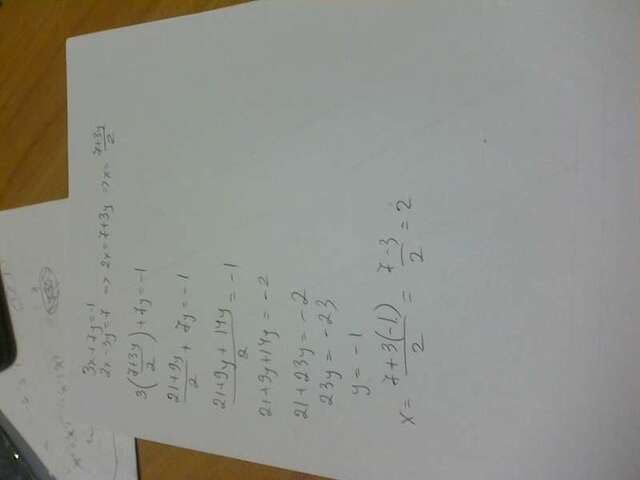 3x+7y=-1
2x-3y=7 => 2x=7+3y => x=\frac{7+3y}{2}
3(\frac{7+3y}{2})+7y=-1
\frac{21+9y}{2}+7y=-1
\frac{21+9y+14y}{2}=-1
21+9y+14y=-2
21+23y=-2
23y=-23
y=-1
x=\frac{7+3(-1)}{2}=\frac{7-3}{2}=2